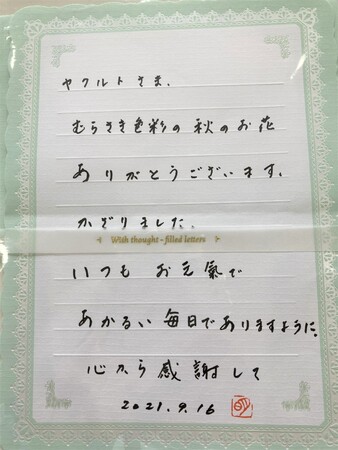 ヤクルトさま、
むらさき色彩の秋のお花
ありがとうございます、
かざりました、
With thought - filled letters
いつも お元氣で
あかるい毎日でありますように、
心から感謝して
2021.9.16